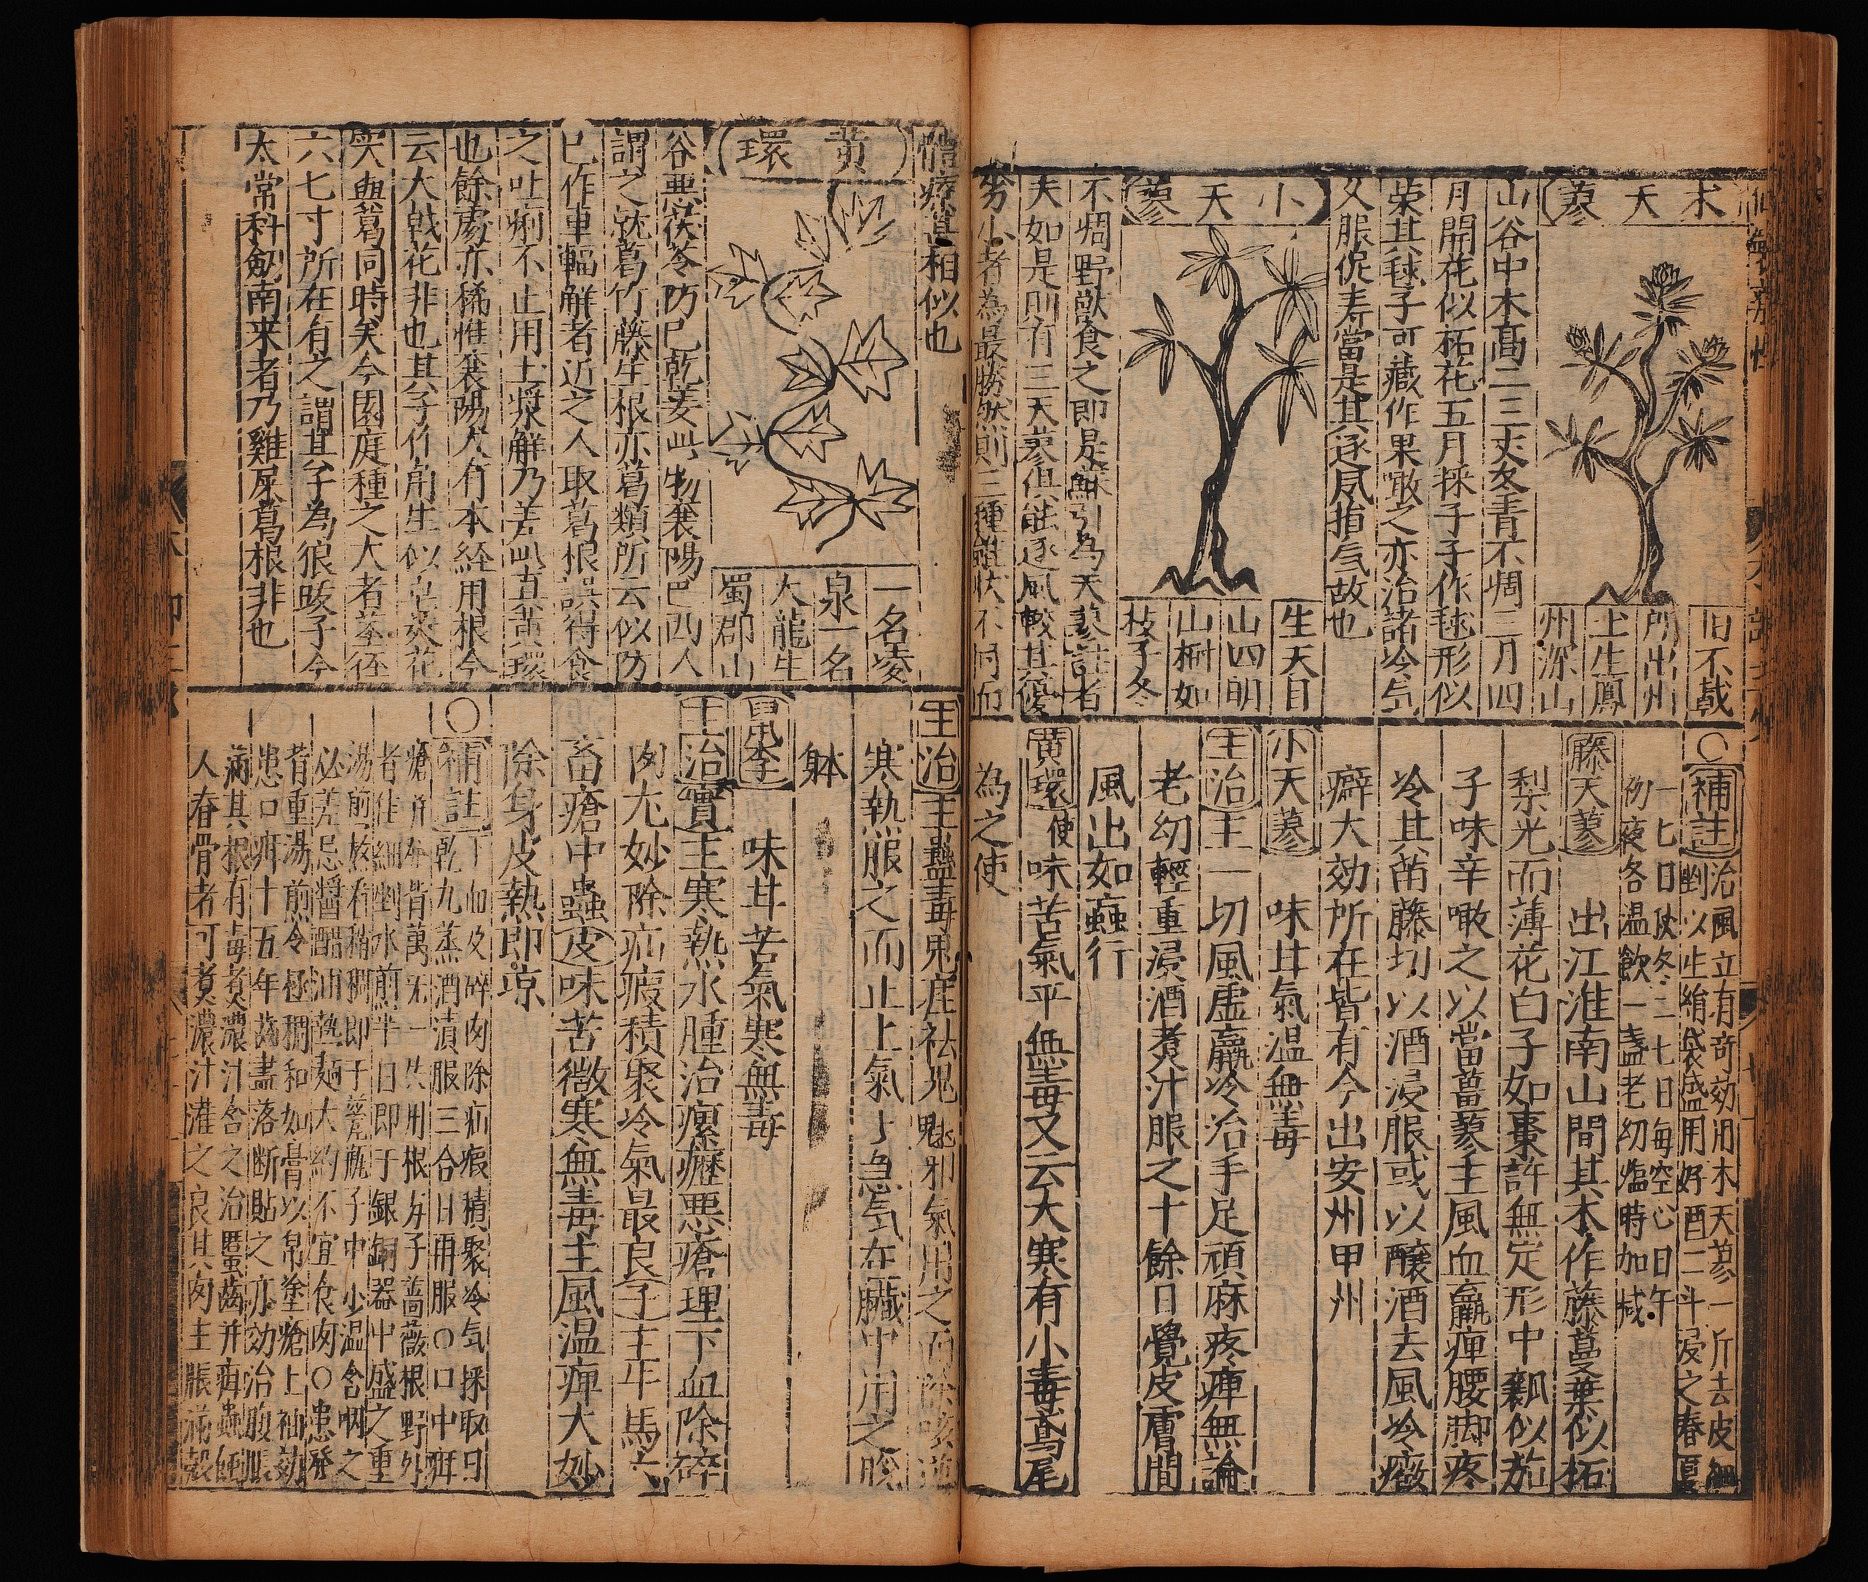 木天蓼
旧不載
所出州
土生鳳
州深山
山谷中木高二三丈冬青不凋三月四
月開花似柘花五月採子子作毬形似
其毬子可藏作果噉之亦治諸冷気
又服促寿當是其逐風損気故也
小天蓼
生天目
山四明
山樹如
枝子冬
不凋野獣食之即是蘇引為天蓼註者
夫如是則有三天蓼俱能逐風較其優
劣小者為最勝然則三種雖狀不同而
○補註治風立有奇効用木天蓼一斤去皮細
剉以生絹袋盛用好酒二斗浸之春夏
一七日秋冬二七日每空心日午
初夜各温飲一盞老幼臨時加減
藤天蓼 出江淮南山間其木作藤蔓葉似柘
梨光而薄花白子如棗許無定形中瓤似茄
子味辛噉之以當薑蓼主風血羸痺腰脚疼
冷其苗藤切以酒浸服或以釀酒去風冷癥
癖大効所在皆有今出安州甲州
小天蓼 味甘氣温無毒
主治主一切風虛羸冷治手足頑麻疼痺無論
老幼輕重浸酒煮汁服之十餘日覺皮膚間
風出如蟲行
黄環使 味苦氣平無毒又云大寒有小毒鳶尾
為之使
體療甚相似也
黄環
一名凌
泉一名
大龍生
蜀郡山
谷悪茯苓防已乾姜此物襄陽巴西人
謂之就葛竹藤生根亦葛類所云似防
已作車輻解者近之人取葛根誤得食
之吐痢不止用土漿解乃差此真黄環
也餘處亦稀惟襄陽大有本経用根今
云大戟花非也其子作角生似皂莢花
実與葛同時矣今園庭種之大者莖径
六七寸所在有之謂其子為狼跋子今
太常科剱南来者乃雞屎葛根非也
主治主蠱毒鬼疰祛鬼魅邪氣用之而除咳逆
寒熱服之而止上氣 急 在臓中用之
躰
鼠李 味甘苦氣寒無毒
主治實主寒熱水腫治瘰癧悪瘡理下血除碎
肉尤妙除疝瘕積聚冷氣最良子主牛馬六
畜瘡中蟲皮味苦微寒無毒主風温痺大妙
除身皮熱即凉
○補註下血及碎肉除疝瘕積聚冷気採取日
乾九蒸酒漬服三合日再服○口中疳
瘡 背萬 一 用根 子薔薇根野外
者佳細剉水煎半日即于銀銅器中盛之重
湯煎 稍稠即于瓷瓶子中少温含嚥之
必差忌醬醋油熱麺大約不宜食肉○患發
背重湯煎冷極稠和如膏以帛塗瘡上神効
患口疳十五年齒盡落断貼之亦効治腹脹
滿其根有毒煮濃汁含之治䘌齒并疳蟲蝕
人脊骨者可煮濃汁灌之良其肉主脹滿穀